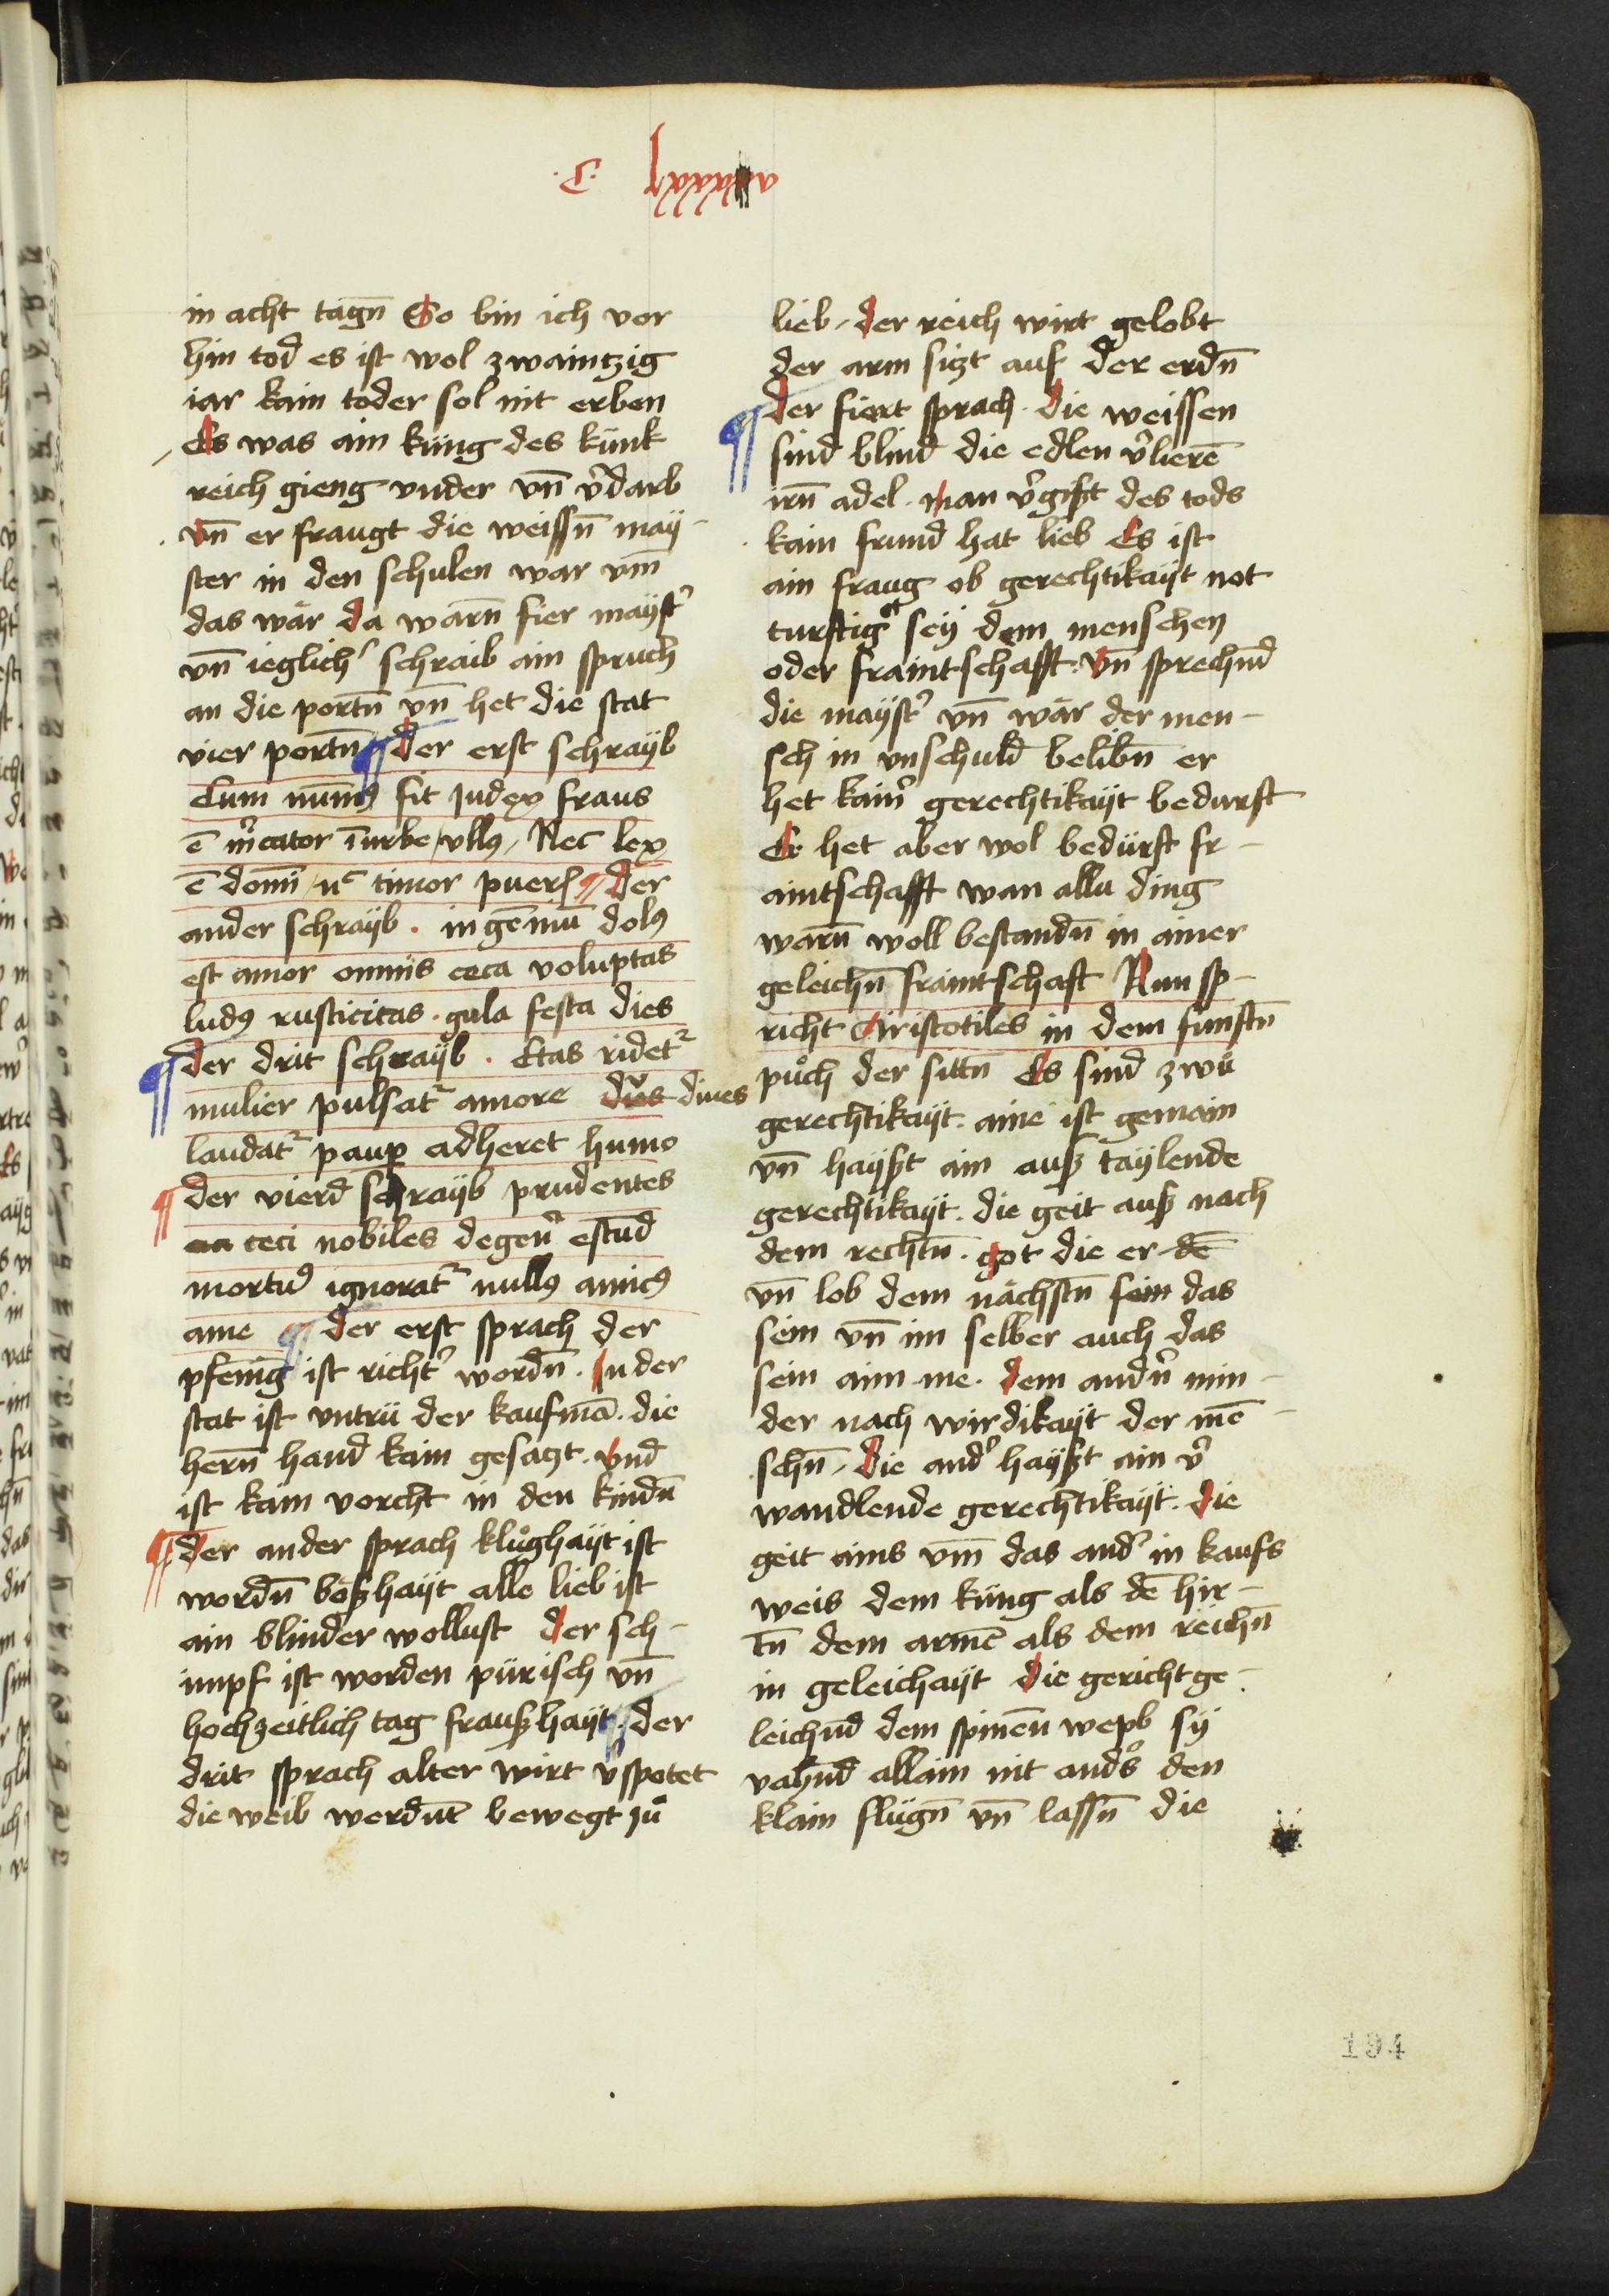 .C. lxxxxi
in acht tagn̄ So bin ich vor
hin tod es ist wol zwaintzig
iar kain toder sol nit erben
Es was ain küng des künk
reich gieng vnder vn̄ v̾darb
vn̄ er fraugt die weissn̄ may-
ster in den schulen war vm̄
das wär da warn̄ fier mayst̾
vn̄ ieglich̾ schraib ain spruch
an die portn̄ vn̄ het die stat
vier portn̄ ¶ der erst schrayb
Cum num̄ꝰ fit judex fraus
ē m̾cator ī urbe / vllꝰ / Nec lex
ē domī / nᶜ timor puerꝭ ¶ der
ander schrayb . ingēniū dolꝰ
est amor omnis ceca voluptas
ludꝰ rusticitas . gula festa dies
¶ der drit schrayb . Etas ridetᷣ
mulier pulsatᷣ amore dus diues
laudatᷣ paup̲ adheret humo
¶ der vierd schrayb prudentes
an ceci nobiles degen̾ estud
mortuꝰ ignoratᷣ nullꝰ amicꝰ
ame ¶ der erst sprach der
pfenig ist richt̾ wordn̄ . In der
stat ist vntrü der kaufmā . die
hern̄ hand kain gesatzt . vnd
ist kain vorcht in den kindn̄
¶ der ander sprach klůghayt ist
wordn̄ boßhayt alle lieb ist
ain blinder wollust der sch-
impf ist worden pürisch vn̄
hochzeitlich tag fraußhayt ¶ der
drit sprach alter wirt v̾spotet
die weib werdn̄t bewegt zů
lieb / der reich wirt gelobt
der arm sizt auf der erdn̄
¶ der fiert sprach . die weissen
sind blind die edlen v̾lierē
irn̄ adel . man v̾gißt des tods
kain frund hat lieb Es ist
ain fraug ob gerechtikayt not
turftig sey dem menschen
oder fraintschafft . vn̄ sprechn̄d
die mayst̾ vn̄ wär der men-
sch in vnschuld belibn̄ er
het kain̾ gerechtikayt bedurft
Er het aber wol bedürft fr-
aintschafft wan allu ding
warn̄ woll bestandn̄ in ainer
geleichn̄ fraintschaft Nun sp-
richt Aristotiles in dem funftn̄
půch der sittn̄ Es sind zwu
gerechtikayt . aine ist gemain
vn̄ hayßt ain auß taylende
gerechtikayt . die geit auß nach
dem rechtn̄ . got die er dē
vn̄ lob dem nächstn̄ sein das
sein vn̄ im selber auch das
sein aim me . dem andn̾ min-
der nach wirdikayt der mē-
schn̄ / die and̾ hayßt ain v̾
wandlende gerechtikayt . die
geit ains vm̄ das and̾ in kaufs
weis dem küng als dē hir-
tn̄ dem armē als dem reichn̄
in geleichayt die gericht ge-
leichn̄d dem spinēn wepb sy
vahn̄d allain nit and̾s den
klain flügn̄ vn̄ lassn̄ die
194